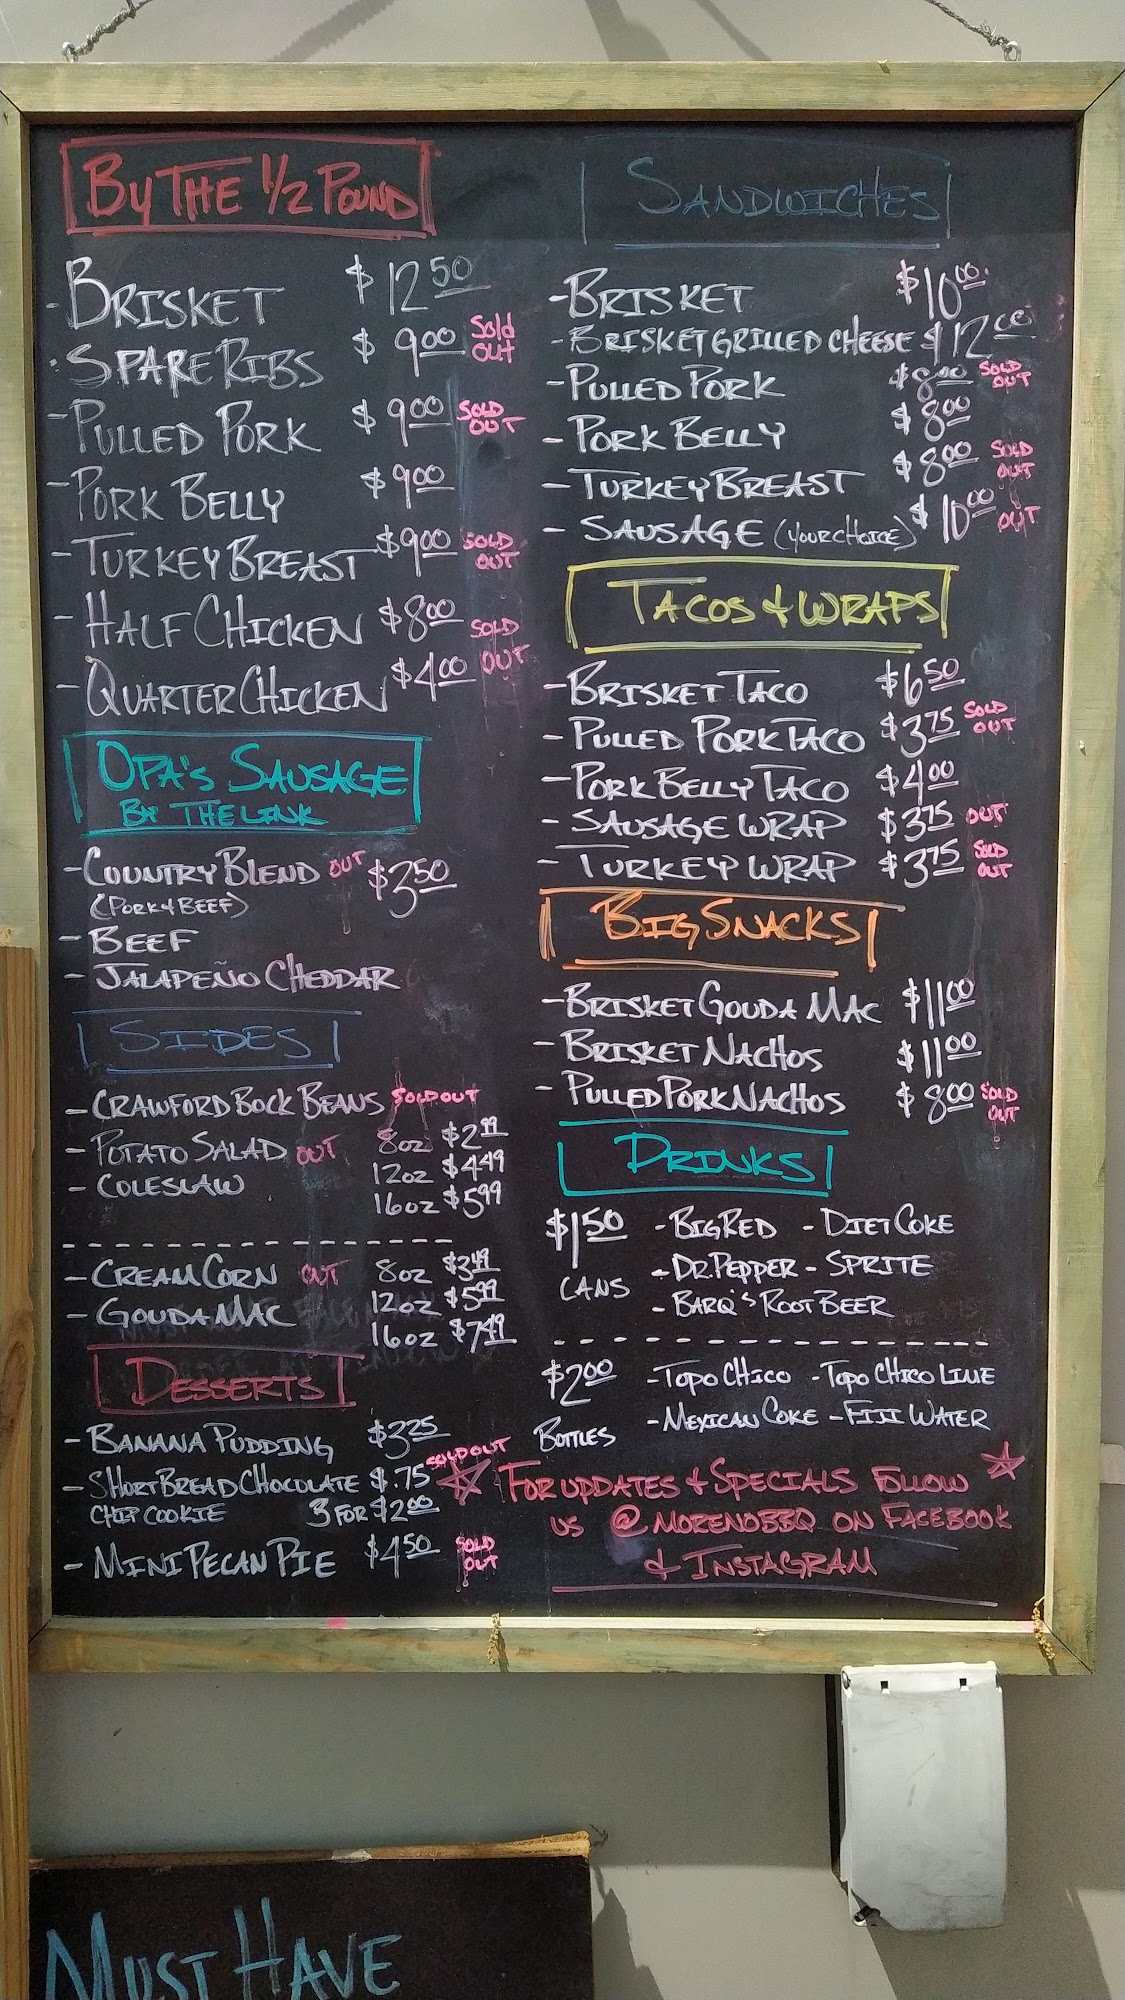 BY THE 1/2 POUND
- BRISKET $12.50
- SPARE RIBS $9.00 Sold OUT
- PULLED PORK $9.00 SOLD OUT
- PORK BELLY $9.00
- TURKEY BREAST $9.00 SOLD OUT
- HALF CHICKEN $8.00 SOLD OUT
- QUARTER CHICKEN $4.00
OPA'S SAUSAGE
BY THE LINK
- COUNTRY BLEND OUT $3.50
(PORK & BEEF)
- BEEF
- JALAPEÑO CHEDDAR
SIDES
- CRAWFORD BOCK BEANS SOLD OUT
- POTATO SALAD OUT 8oz $2.99
- COLESLAW 12oz $4.49
16oz $5.99
- CREAM CORN OUT 8oz $3.49
- GOUDA MAC 12oz $5.99
16oz $7.49
DESSERTS
- BANANA PUDDING $3.25
- SHORTBREAD CHOCOLATE $.75 SOLD OUT
CHIP COOKIE 3 FOR $2.00
- MINI PECAN PIE $4.50 SOLD OUT
SANDWICHES
- BRISKET $10.00
- BRISKET GRILLED CHEESE $12.00
- PULLED PORK $8.00 SOLD OUT
- PORK BELLY $8.00
- TURKEY BREAST $8.00 SOLD OUT
- SAUSAGE (YOUR CHOICE) $10.00 OUT
TACOS & WRAPS
- BRISKET TACO $6.50
- PULLED PORK TACO $3.75 SOLD OUT
- PORK BELLY TACO $4.00
- SAUSAGE WRAP $3.75 OUT
- TURKEY WRAP $3.75 SOLD OUT
BIG SNACKS
- BRISKET GOUDA MAC $11.00
- BRISKET NACHOS $11.00
- PULLED PORK NACHOS $8.00 SOLD OUT
DRINKS
$1.50 - BIG RED - DIET COKE
CANS - DR. PEPPER - SPRITE
- BARQ'S ROOT BEER
$2.00 - TOPO CHICO - TOPO CHICO LIME
BOTTLES - MEXICAN COKE - FIJI WATER
FOR UPDATES & SPECIALS FOLLOW
US @MORENOBBQ ON FACEBOOK
& INSTAGRAM
MUST HAVE